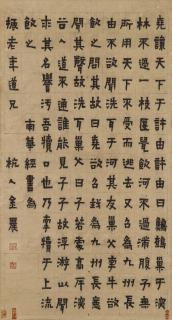 堯讓天下于許由許由曰鷦鷯巢于深
林不過一枝匽鼠飲河不過滿腹予無
所用天下不受而逃去又召為九州長
由不欲聞洗耳于河其友巢父牽牛欲
飲之問其故曰堯欲召我為九州長惡
聞其聲故洗耳巢父曰子若處高岸深
谷人道不通誰能見子子故浮游以聞
求其名譽污吾犢口也乃牽犢于上流
飲之
南華經書為
振老年道兄
杭人金農